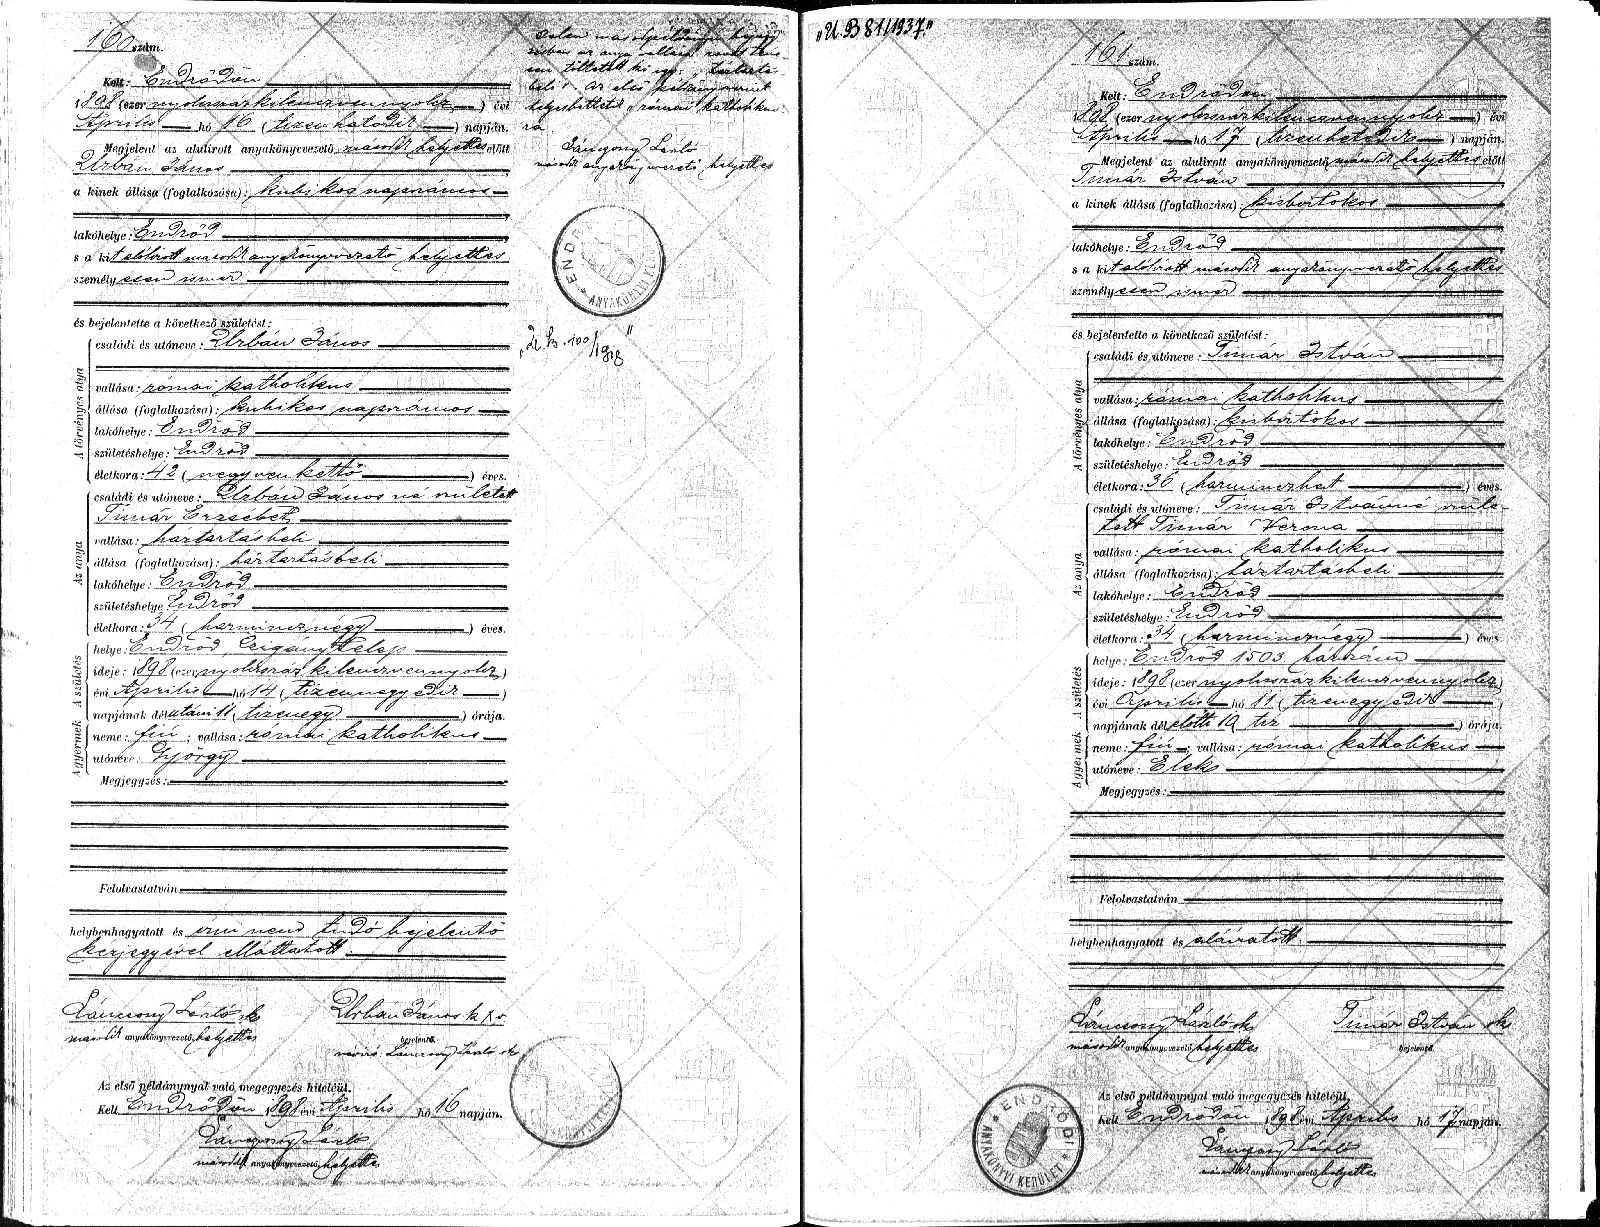 160 szám.
Kelt: Endrődön
1898 (ezer nyolczszázkilenczvennyolcz) évi
Április hó 16 (tizenhatodik) napján.
Megjelent az alulirott anyakönyvvezető második helyettes előtt
Urbán János
a kinek állása (foglalkozása): kubikos napszámos
lakóhelye: Endrőd
s a kit alólirott második anyakönyvvezető helyettes
személyesen ismer
és bejelentette a következő születést:
A törvényes atya
családi és utóneve: Urbán János
vallása: római katholikus
állása (foglalkozása): kubikos napszámos
lakóhelye: Endrőd
születéshelye: Endrőd
életkora: 42 (negyvenkettő) éves.
Az anya
családi és utóneve: Urbán Jánosné született
Timár Erzsébet
vallása: háztartásbeli
állása (foglalkozása): háztartásbeli
lakóhelye: Endrőd
születéshelye Endrőd
életkora: 34 (harmincznégy) éves.
A születés
helye: Endrőd, Czigány telep
ideje: 1898 (ezer nyolczszázkilenczvennyolcz)
évi Április hó 14 (tizennegyedik)
napjának délutáni 11 (tizenegy) órája.
A gyermek
neme: fiú; vallása: római katholikus
utóneve: György
Megjegyzés:
Felolvastatván
helybenhagyatott és irni nem tudó bejelentő
kézjegyével elláttatott.
Lánczony László sk
második anyakönyvvezető helyettes
Urbán János k x v
bejelentő.
névíró: Lánczony László sk
Az első példánynyal való megegyezés hiteléül.
Kelt Endrődön 1898 évi Április hó 16 napján.
Lánczony László
második anyakönyvvezető helyettes
Ezen másodpéldány
az anya vallása
tiltetett ki így: "háztartás-
beli". Az első példány szerint
helyesbittetett "római katholikus"-
ra.
Lánczony László
második anyakönyvvezető helyettes
ENDRŐDI
ANYAKÖNYVI KERÜLET
"U. B. 100/1898"
"U B 81/1937"
161 szám.
Kelt: Endrődön
1898 (ezer nyolczszázkilenczvennyolcz) évi
Április hó 17 (tizenhetedik) napján.
Megjelent az alulirott anyakönyvvezető második helyettes előtt
Timár István
a kinek állása (foglalkozása): kisbirtokos
lakóhelye: Endrőd
s a kit alólirott második anyakönyvvezető helyettes
személyesen ismer
és bejelentette a következő születést:
A törvényes atya
családi és utóneve: Timár István
vallása: római katholikus
állása (foglalkozása): kisbirtokos
lakóhelye: Endrőd
születéshelye: Endrőd
életkora: 36 (harminczhat) éves.
Az anya
családi és utóneve: Timár Istvánné szüle-
tett Timár Verona
vallása: római katholikus
állása (foglalkozása): háztartásbeli
lakóhelye: Endrőd
születéshelye: Endrőd
életkora: 34 (harmincznégy) éves.
A születés
helye: Endrőd 1503 házszám
ideje: 1898 (ezer nyolczszázkilenczvennyolcz)
évi Április hó 11 (tizenegyedik)
napjának délelőtti 10 tiz) órája.
A gyermek
neme: fiú; vallása: római katholikus
utóneve: Elek
Megjegyzés:
Felolvastatván
helybenhagyatott és aláiratott
Lánczony László sk
második anyakönyvvezető helyettes
Timár István sk
bejelentő.
Az első példánynyal való megegyezés hiteléül.
Kelt Endrődön 1898 évi Április hó 17 napján.
Lánczony László
második anyakönyvvezető helyettes
ENDRŐDI
ANYAKÖNYVI KERÜLET